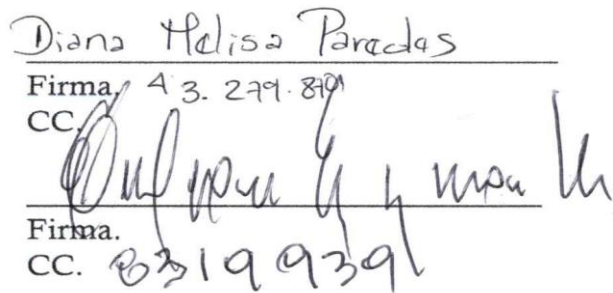 Diana Melisa Paredes
Firma. 43.279.879
CC.
Firma.
CC. 8319939